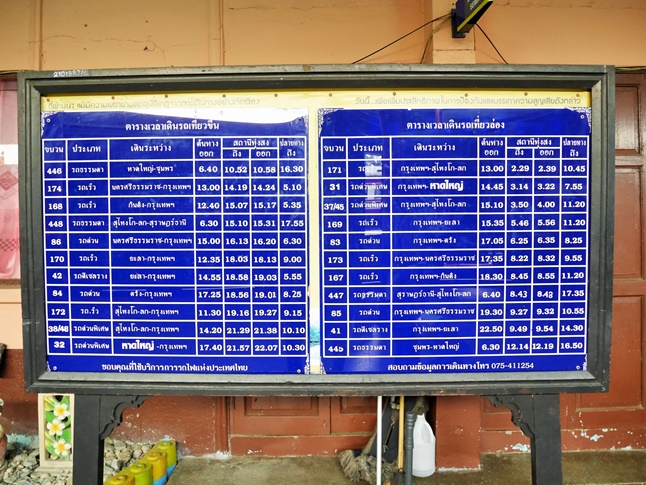 ตารางเวลาเดินรถเที่ยวขึ้น
ขบวน ประเภท เดินระหว่าง ต้นทาง สถานีทุ่งสง ปลายทาง
ออก ถึง ออก ถึง
446 รถธรรมดา หาดใหญ่-ชุมพร 6.40 10.52 10.58 16.30
174 รถเร็ว นครศรีธรรมราช-กรุงเทพฯ 13.00 14.19 14.24 5.10
168 รถเร็ว กันตัง-กรุงเทพฯ 12.40 15.07 15.17 5.35
448 รถธรรมดา สุไหงโก-ลก-สุราษฎร์ธานี 6.30 15.10 15.31 17.55
86 รถด่วน นครศรีธรรมราช-กรุงเทพฯ 15.00 16.13 16.20 6.30
170 รถเร็ว ยะลา-กรุงเทพฯ 12.35 18.03 18.13 9.00
42 รถดีเซลราง ยะลา-กรุงเทพฯ 14.55 18.58 19.03 5.55
84 รถด่วน ตรัง-กรุงเทพฯ 17.25 18.56 19.01 8.25
172 รถเร็ว สุไหงโก-ลก-กรุงเทพฯ 11.30 19.16 19.27 9.15
38/46 รถด่วนพิเศษ สุไหงโก-ลก-กรุงเทพฯ 14.20 21.29 21.38 10.10
32 รถด่วนพิเศษ หาดใหญ่-กรุงเทพฯ 17.40 21.57 22.07 10.30
ขอบคุณที่ใช้บริการการรถไฟแห่งประเทศไทย
ตารางเวลาเดินรถเที่ยวล่อง
ขบวน ประเภท เดินระหว่าง ต้นทาง สถานีทุ่งสง ปลายทาง
ออก ถึง ออก ถึง
171 รถเร็ว กรุงเทพฯ-สุไหงโก-ลก 13.00 2.29 2.39 10.45
31 รถด่วนพิเศษ กรุงเทพฯ-หาดใหญ่ 14.45 3.14 3.22 7.55
37/45 รถด่วนพิเศษ กรุงเทพฯ-สุไหงโก-ลก 15.10 3.50 4.00 11.20
169 รถเร็ว กรุงเทพฯ-ยะลา 15.35 5.46 5.56 11.20
83 รถด่วน กรุงเทพฯ-ตรัง 17.05 6.25 6.35 8.25
173 รถเร็ว กรุงเทพฯ-นครศรีธรรมราช 17.35 8.22 8.32 9.55
167 รถเร็ว กรุงเทพฯ-กันตัง 18.30 8.45 8.55 11.20
447 รถธรรมดา สุราษฎร์ธานี-สุไหงโก-ลก 6.40 8.43 8.48 17.35
85 รถด่วน กรุงเทพฯ-นครศรีธรรมราช 19.30 9.27 9.32 10.55
41 รถดีเซลราง กรุงเทพฯ-ยะลา 22.50 9.49 9.54 14.30
445 รถธรรมดา ชุมพร-หาดใหญ่ 6.30 12.14 12.19 16.50
สอบถามข้อมูลการเดินทางโทร 075-411254